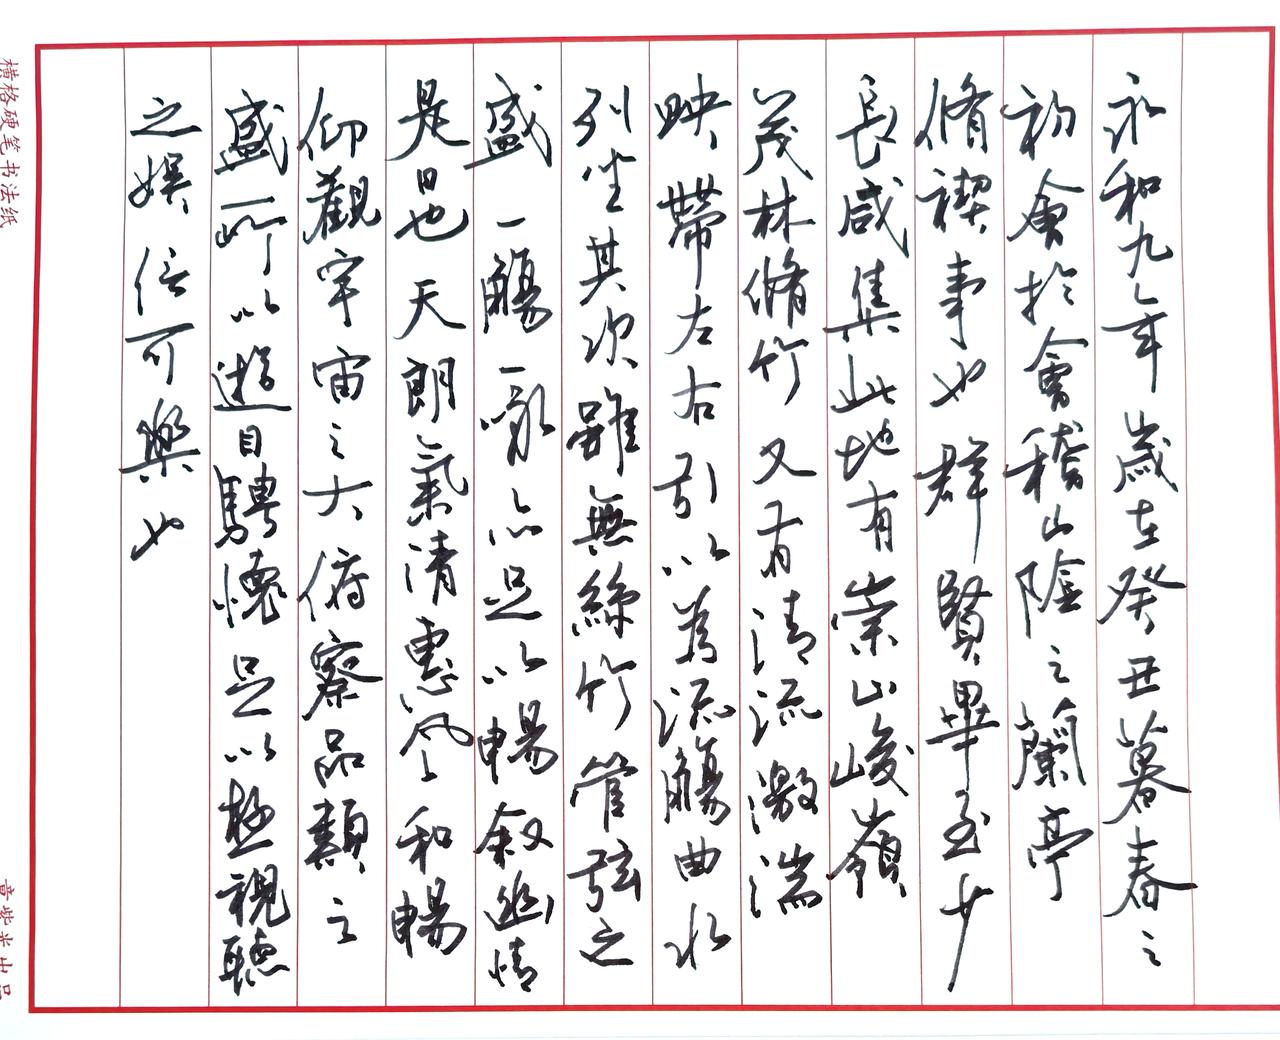 永和九年歲在癸丑暮春之
初會於會稽山陰之蘭亭
脩禊事也群賢畢至少
長咸集此地有崇山峻嶺
茂林脩竹又有清流激湍
映帶左右引以為流觴曲水
列坐其次雖無絲竹管弦之
盛一觴一詠亦足以暢敘幽情
是日也天朗氣清惠風和暢
仰觀宇宙之大俯察品類之
盛所以遊目騁懷足以極視聽
之娛信可樂也
橫格硬笔书法纸
音紫米出品